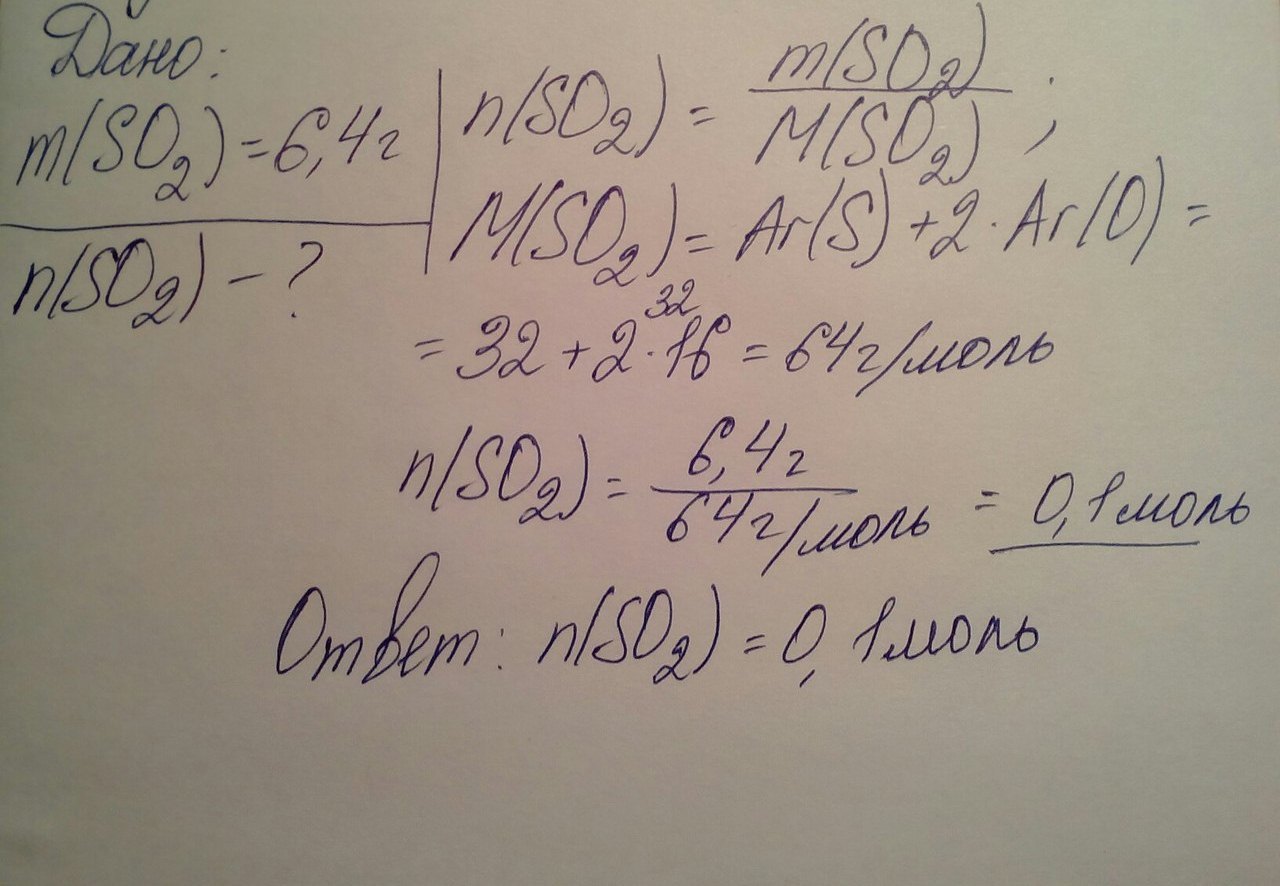 Дано:
m(SO₂) = 6,4г
n(SO₂) - ?
n(SO₂) = m(SO₂) / M(SO₂) ;
M(SO₂) = Ar(S) + 2 · Ar(O) =
32
= 32 + 2 · 16 = 64г/моль
n(SO₂) = 6,4г / 64г/моль = 0,1моль
Ответ: n(SO₂) = 0,1моль